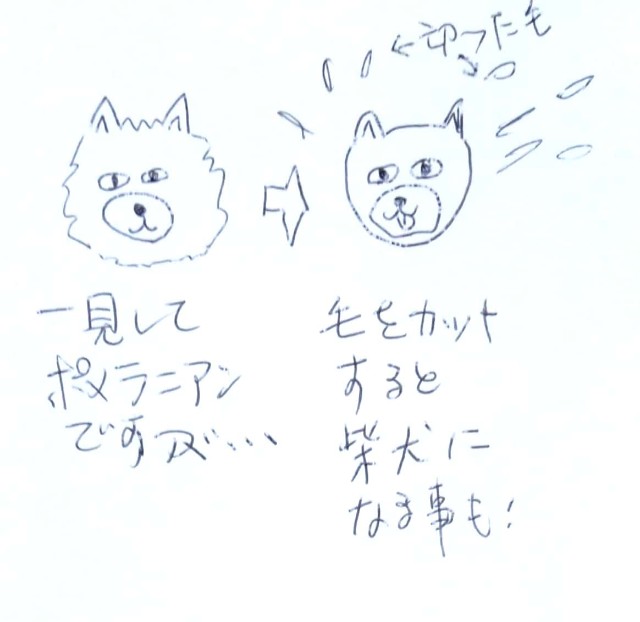 切った毛
一見して
ポメラニアン
ですが…
毛をカット
すると
柴犬に
なる事も!